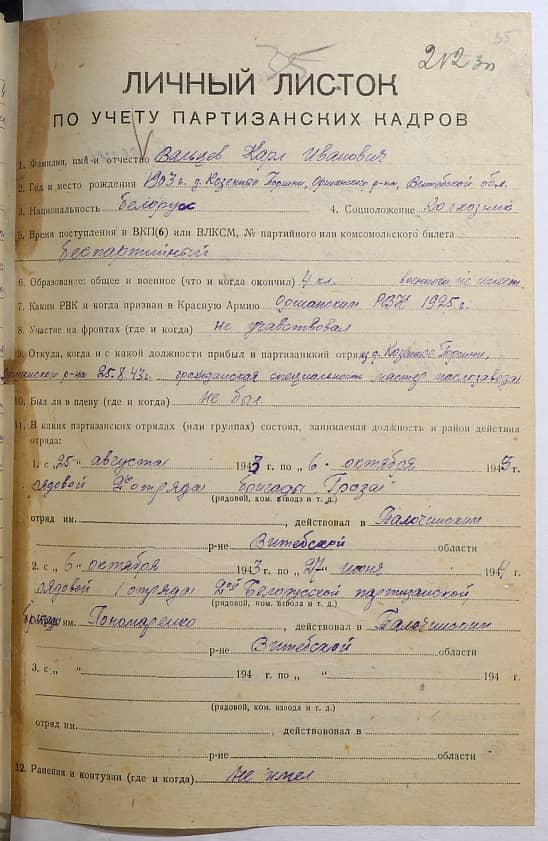 35
212 зп
ЛИЧНЫЙ ЛИСТОК
ПО УЧЕТУ ПАРТИЗАНСКИХ КАДРОВ
1. Фамилия, имя и отчество Вальцев Карл Иванович
2. Год и место рождения 1903 г. д. Козенько Оршанского р-на, Витебской обл.
3. Национальность белорус 4. Соцположение колхозник
5. Время поступления в ВКП(б) или ВЛКСМ, № партийного или комсомольского билета
беспартийный
6. Образование: общее и военное (что и когда окончил) 4 кл. военного не имеет
7. Каким РВК и когда призван в Красную Армию Оршанским РВК 1925 г.
8. Участие на фронтах (где и когда) не участвовал
9. Откуда, когда и с какой должности прибыл в партизанкский отряд из д. Козенько
Оршанского р-на 25.8.43 г. гражданская специальность мастер маслозавода
10. Был ли в плену (где и когда) не был
11. В каких партизанских отрядах (или группах) состоял, занимаемая должность и район действия
отряда:
1. с „25“ августа 1943 г. по „6“ октября 1943 г.
рядовой 2го отряда бригады „Гроза“
(рядовой, ком. взвода и т. д.)
отряд им. , действовал в Талочинском
р-не Витебской области
2. с „6“ октября 1943 г. по „27“ июня 1944 г.
рядовой 1 отряда 2ой Белорусской партизанской
(рядовой, ком. взвода и т. д.)
бригады им. Пономаренко , действовал в Талочинском
р-не Витебской области
3. с „ “ 194 г. по „ “ 194 г.
(рядовой, ком. взвода и т. д.)
отряд им. , действовал в
р-не области
12. Ранения и контузии (где и когда) не имел